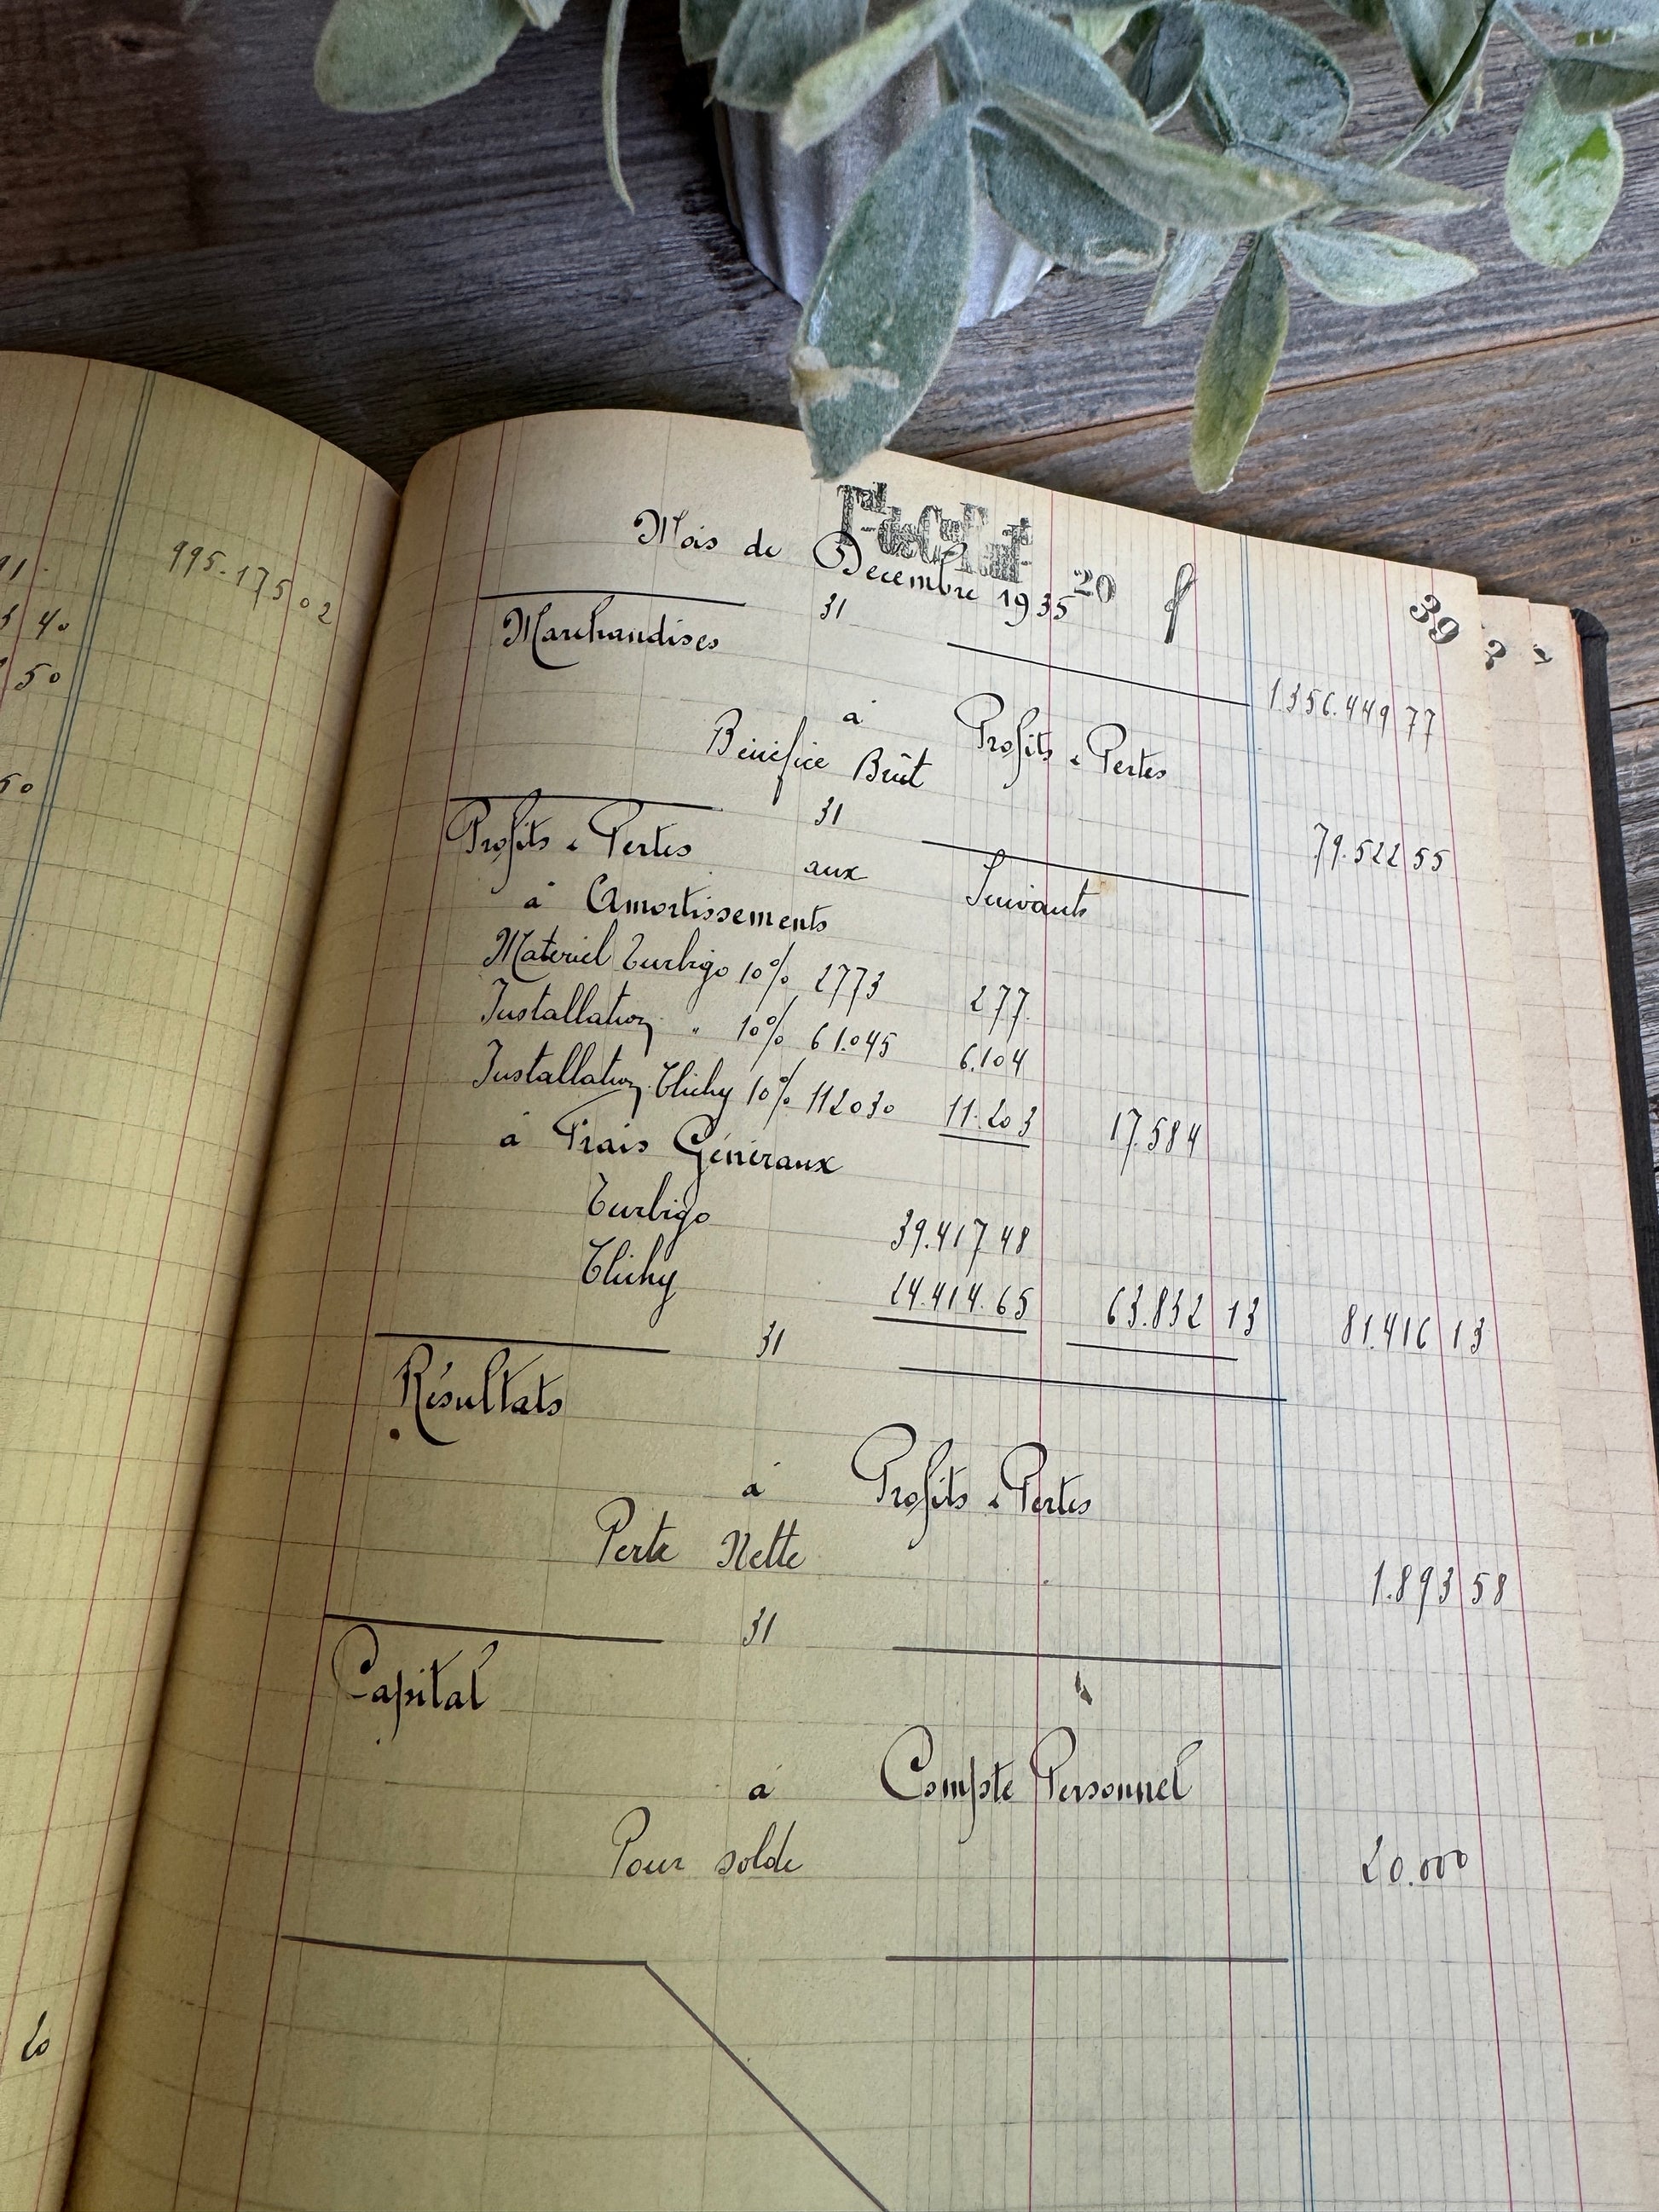 995.175 02
40
50
50
20
Mois de Decembre 1935
20
39
31
1356.449 77
Marchandises
à Profits & Pertes
Bénéfice Brût
79.522 55
31
Profits & Pertes aux Suivants
à Amortissements
Materiel Turbigo 10% 2773 277
Installation " 10% 61.045 6.104
Installation Clichy 10% 112030 11.203 17.584
à Frais Généraux
Turbigo 39.417 48
Clichy 24.414.65 63.832 13 81.416 13
31
Résultats
à Profits & Pertes
Perte Nette
1.893 58
31
Capital
à Compte Personnel
Pour solde
20.000